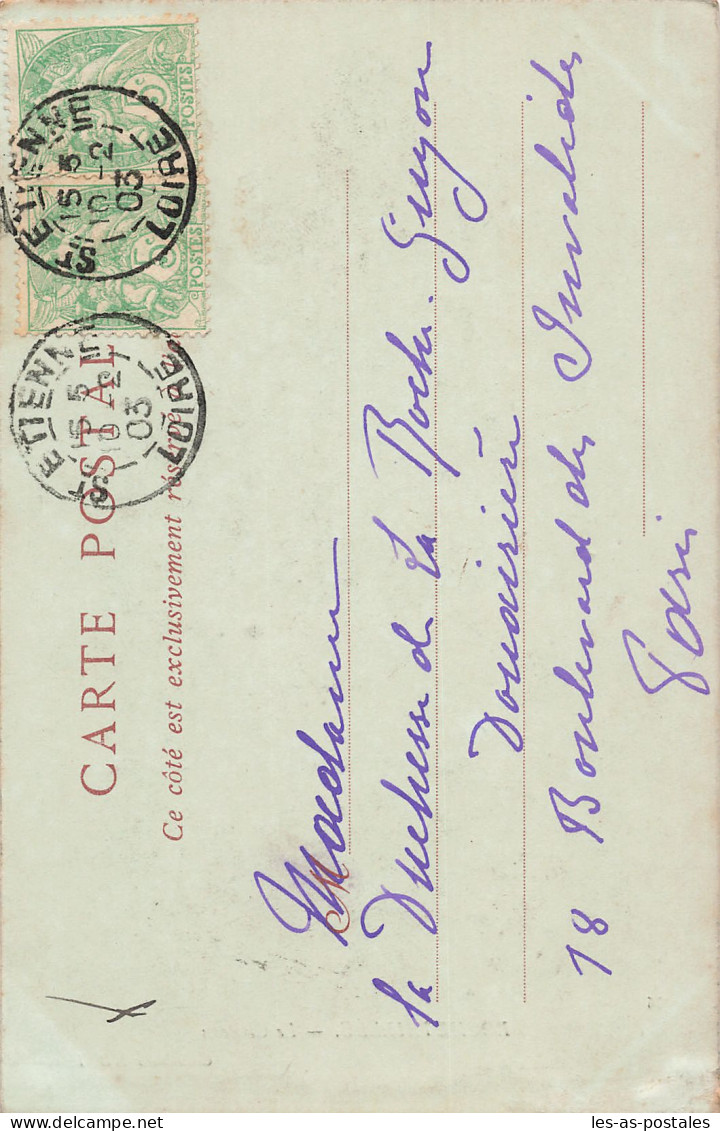 CARTE POSTALE
Ce côté est exclusivement réservé à
FRANÇAISE
5
POSTES
5
POSTES
ST ETIENNE
15 5
10 -2
03
LOIRE
ST ETIENNE
15 5
10 -2
03
LOIRE
M
Madame
la Duchesse de La Roche-Guyon
Douairière
18 Boulevard des Invalides
Paris
les-as-postales
Delcampe.net